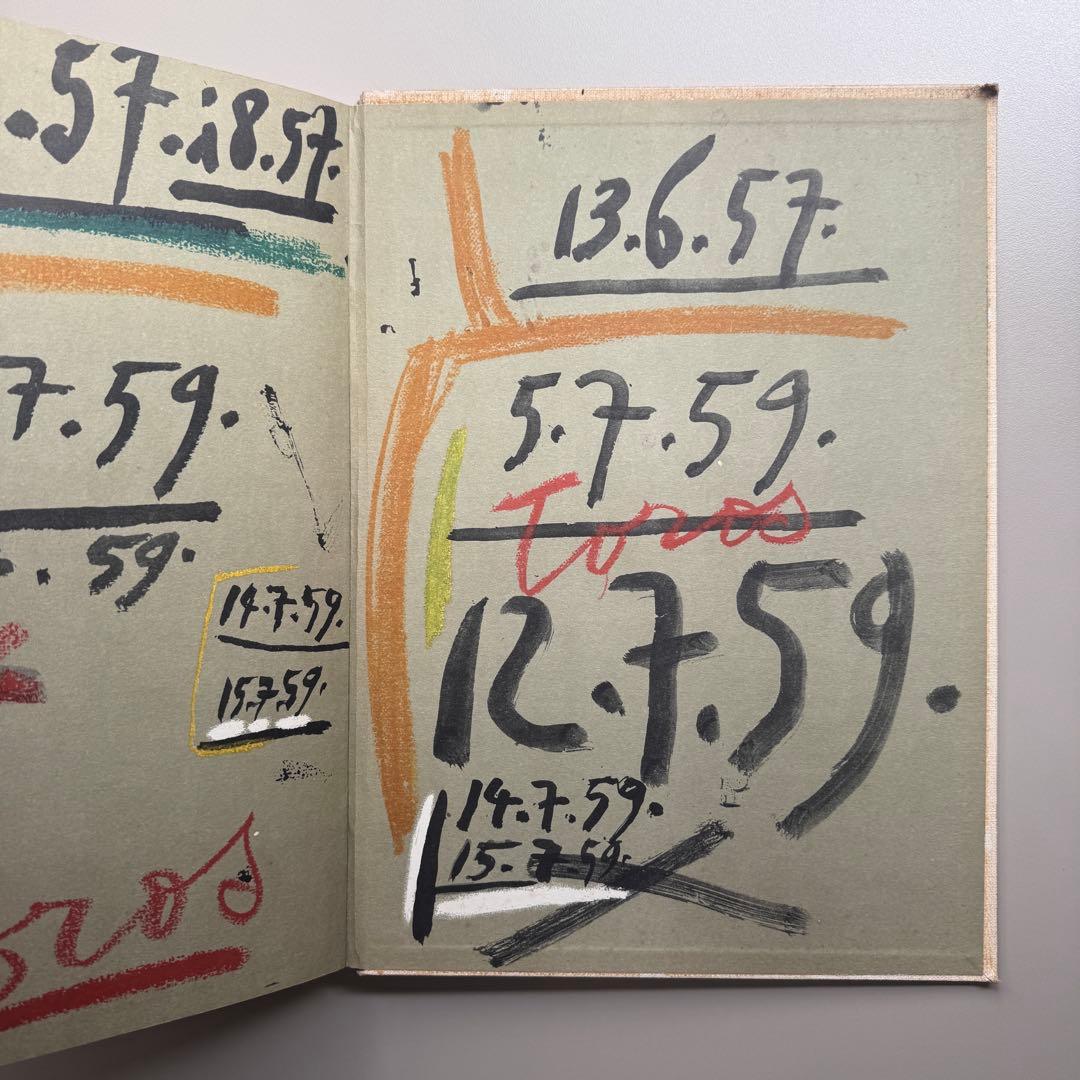 .57.18.57.
7.59.
. 59.
14.7.59.
15.7.59.
oros
13.6.57.
5.7.59.
Toros
12.7.59.
14.7.59.
15.7.59.